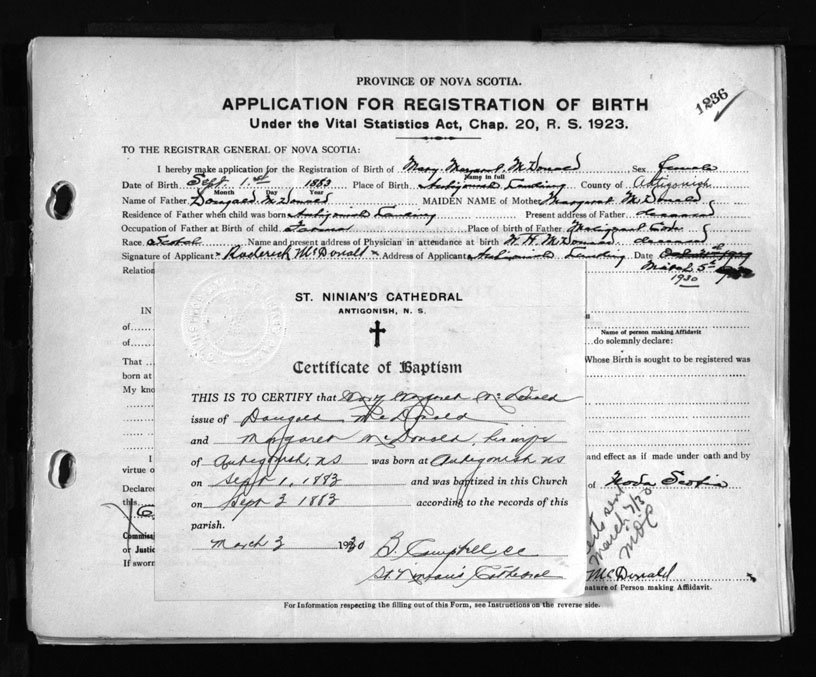 PROVINCE OF NOVA SCOTIA.
APPLICATION FOR REGISTRATION OF BIRTH
1236
Under the Vital Statistics Act, Chap. 20, R. S. 1923.
TO THE REGISTRAR GENERAL OF NOVA SCOTIA:
I hereby make application for the Registration of Birth of Mary Margaret McDonald Sex female
Name in full
Date of Birth Sept 1.st 1883 Place of Birth Antigonish Landing County of Antigonish
Month Day Year
Name of Father Dougald McDonald MAIDEN NAME of Mother Margaret McDonald
Residence of Father when child was born Antigonish Landing Present address of Father deceased
Occupation of Father at Birth of child Farmer Place of birth of Father
Race Scotch Name and present address of Physician in attendance at birth W. H. McDonald deceased
Signature of Applicant Roderick McDonald Address of Applicant Antigonish Landing Date
Relation March 5th
1930
ST. NINIAN'S CATHEDRAL
ANTIGONISH, N. S.
IN
of
Name of person making Affidavit
of do solemnly declare:
Certificate of Baptism
That Whose Birth is sought to be registered was
born at
My kno
THIS IS TO CERTIFY that Mary Margaret McDonald
issue of Dougald McDonald
and Margaret McDonald
I and effect as if made under oath and by
of Antigonish, NS was born at Antigonish NS
virtue o
on Sept 1, 1883 and was baptized in this Church
Declared of Nova Scotia
on Sept 3 1883 according to the records of this
this
parish.
Commiss
March 3 1930 B. Campbell cc
or Justic
St. Ninian's Cathedral
If sworn
sent
March 7/30
McDonald
nature of Person making Affidavit.
For Information respecting the filling out of this Form, see Instructions on the reverse side.